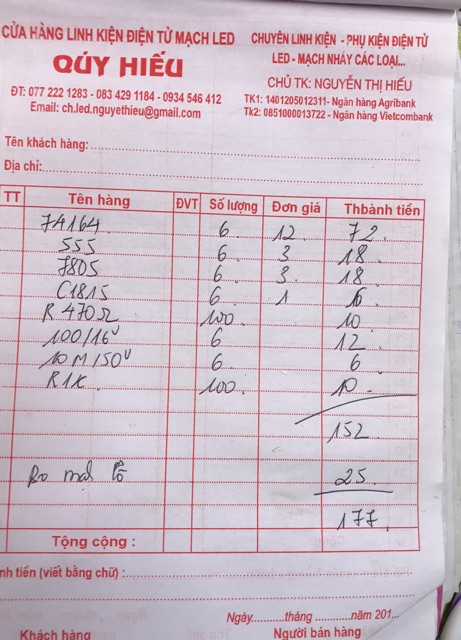 CỬA HÀNG LINH KIỆN ĐIỆN TỬ MẠCH LED
QÚY HIẾU
ĐT: 077 222 1283 - 083 429 1184 - 0934 546 412
Email: ch.led.nguyethieu@gmail.com
CHUYÊN LINH KIỆN - PHỤ KIỆN ĐIỆN TỬ
LED - MẠCH NHÁY CÁC LOẠI...
CHỦ TK: NGUYỄN THỊ HIẾU
TK1: 1401205012311- Ngân hàng Agribank
Tk2: 0851000013722 - Ngân hàng Vietcombank
Tên khách hàng:
Địa chỉ:
TT Tên hàng ĐVT Số lượng Đơn giá Thbành tiền
74164 6 12 72
555 6 3 18
7805 6 3 18
C1815 6 1 6
R 470Ω 100 10
100/16V 6 12
10M/50V 6 6
R1K 100 10
152
Bo mạch lỗ 25
177
Tộng cộng :
nh tiền (viết bằng chữ) :
Ngày.........tháng ..........năm 201...
Khách hàng Người bán hàng